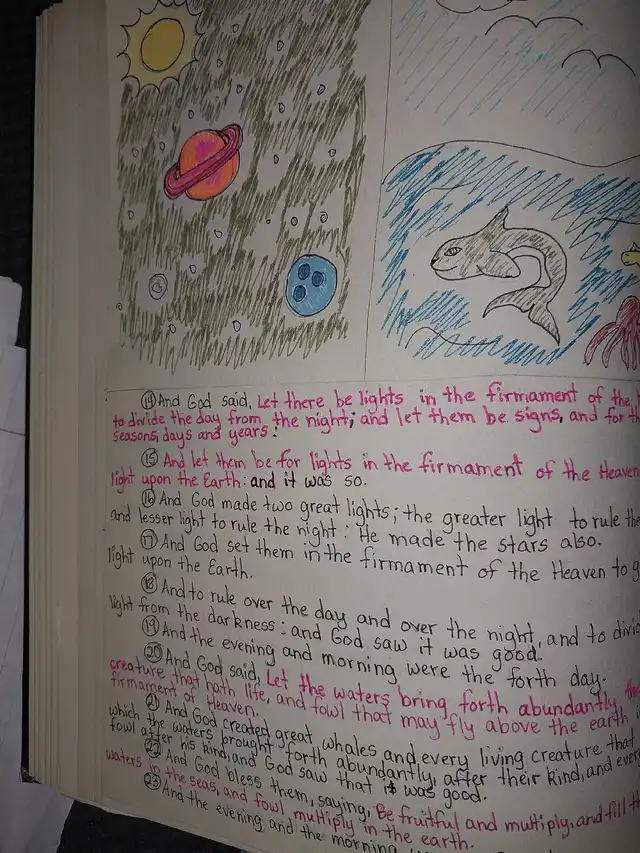 (14) And God said, Let there be lights in the firmament of the
to divide the day from the night; and let them be signs, and for
seasons, days and years:
(15) And let them be for lights in the firmament of the Heaven
light upon the Earth: and it was so.
(16) And God made two great lights; the greater light to rule the
and lesser light to rule the night: He made the stars also.
(17) And God set them in the firmament of the Heaven to
light upon the Earth.
(18) And to rule over the day and over the night, and to
light from the darkness: and God saw it was good.
(19) And the evening and morning were the forth day.
(20) And God said, Let the waters bring forth abundantly, the
creature that hath life, and fowl that may fly above the earth
firmament of Heaven.
(21) And God created great whales and every living creature that
which the waters brought forth abundantly, after their kind, and every
fowl after his kind, and God saw that it was good.
(22) And God bless them, saying, Be fruitful and multiply, and fill
waters in the seas, and fowl multiply in the earth.
(23) And the evening and the morning